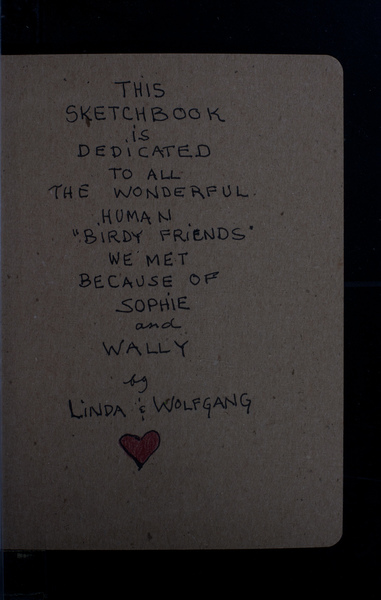 THIS
SKETCHBOOK
is
DEDICATED
TO ALL
THE WONDERFUL
HUMAN
"BIRDY FRIENDS"
WE MET
BECAUSE OF
SOPHIE
and
WALLY
by
LINDA & WOLFGANG